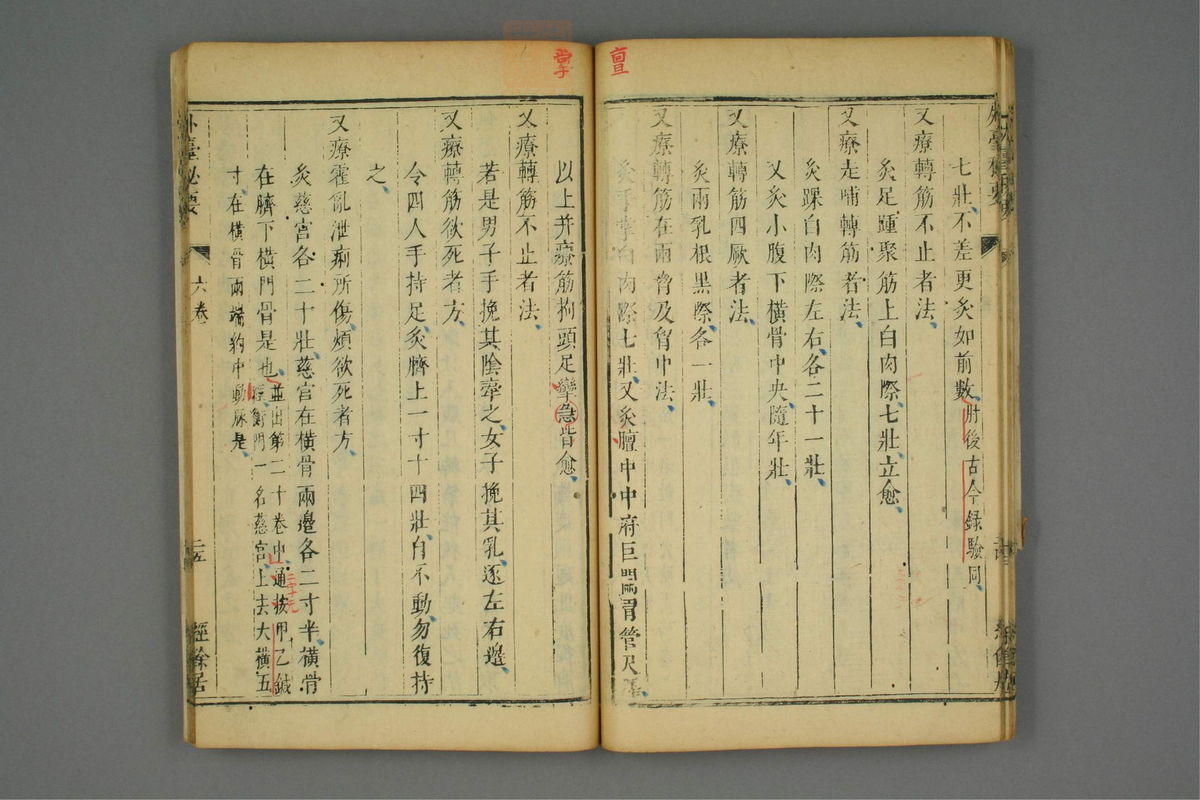 亶
七壯不差更灸如前數肘後古今錄驗同
又療轉筋不止者法
灸足踵聚筋上白肉際七壯立愈
又療走哺轉筋者法
灸踝白肉際左右各二十一壯
又灸小腹下橫骨中央隨年壯
又療轉筋四厥者法
灸兩乳根黑際各一壯
又療轉筋在兩脅及胷中法
灸手掌白肉際七壯又灸膻中中府巨闕胃管尺澤
掌
以上并療筋拘頭足攣急皆愈
又療轉筋不止者法
若是男子手挽其陰牽之女子挽其乳逐左右邊
又療轉筋欲死者方
令四人手持足灸臍上一寸十四壯自不動勿復持
之
又療霍亂泄痢所傷煩欲死者方
灸慈宮各二十壯慈宮在橫骨兩邊各二寸半橫骨
在臍下橫門骨是也並出第二十卷中通按甲乙鍼
經衝門一名慈宮上去大橫五
寸在橫骨兩端約中動脉是
外臺秘要
六卷
二五
經餘居